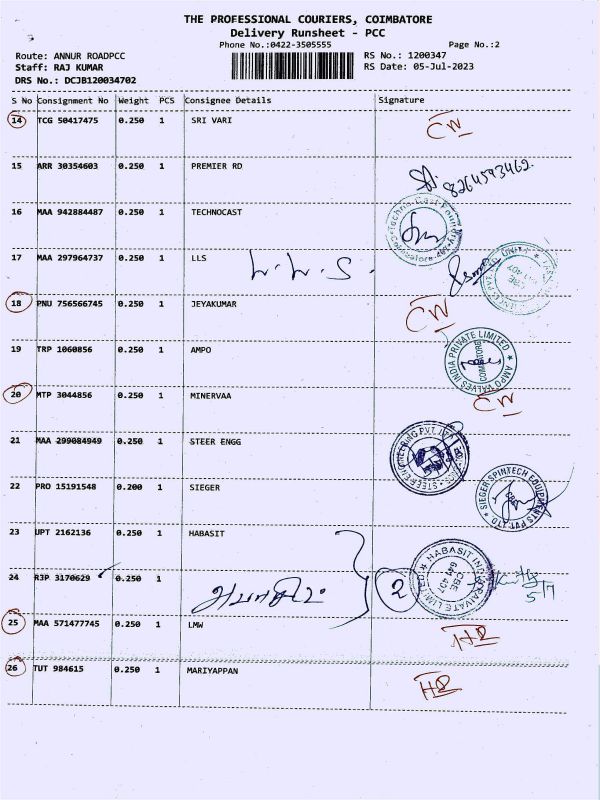 THE PROFESSIONAL COURIERS, COIMBATORE
Delivery Runsheet - PCC
Phone No.:0422-3505555
Page No.:2
Route: ANNUR ROADPCC
RS No.: 1200347
Staff: RAJ KUMAR
RS Date: 05-Jul-2023
DRS No.: DCJB120034702
S No Consignment No Weight PCS Consignee Details Signature
14 TCG 50417475 0.250 1 SRI VARI
CW
15 ARR 30354603 0.250 1 PREMIER RD
8264593462.
16 MAA 942884487 0.250 1 TECHNOCAST
17 MAA 297964737 0.250 1 LLS
L.L.S.
18 PNU 756566745 0.250 1 JEYAKUMAR
CW
19 TRP 1060856 0.250 1 AMPO
AMPO VALVES INDIA PRIVATE LIMITED
COIMBATORE
20 MTP 3044856 0.250 1 MINERVAA
CW
21 MAA 299084949 0.250 1 STEER ENGG
STEER ENGINEERING PVT. LTD.
22 PRO 15191548 0.200 1 SIEGER
SIEGER SPINTECH EQUIPMENTS PVT. LTD.
23 UPT 2162136 0.250 1 HABASIT
HABASIT PRIVATE LIMITED
CBE
641 407
24 RJP 3170629 0.250 1
2
5/7
25 MAA 571477745 0.250 1 LMW
HR
26 TUT 984615 0.250 1 MARIYAPPAN
HR